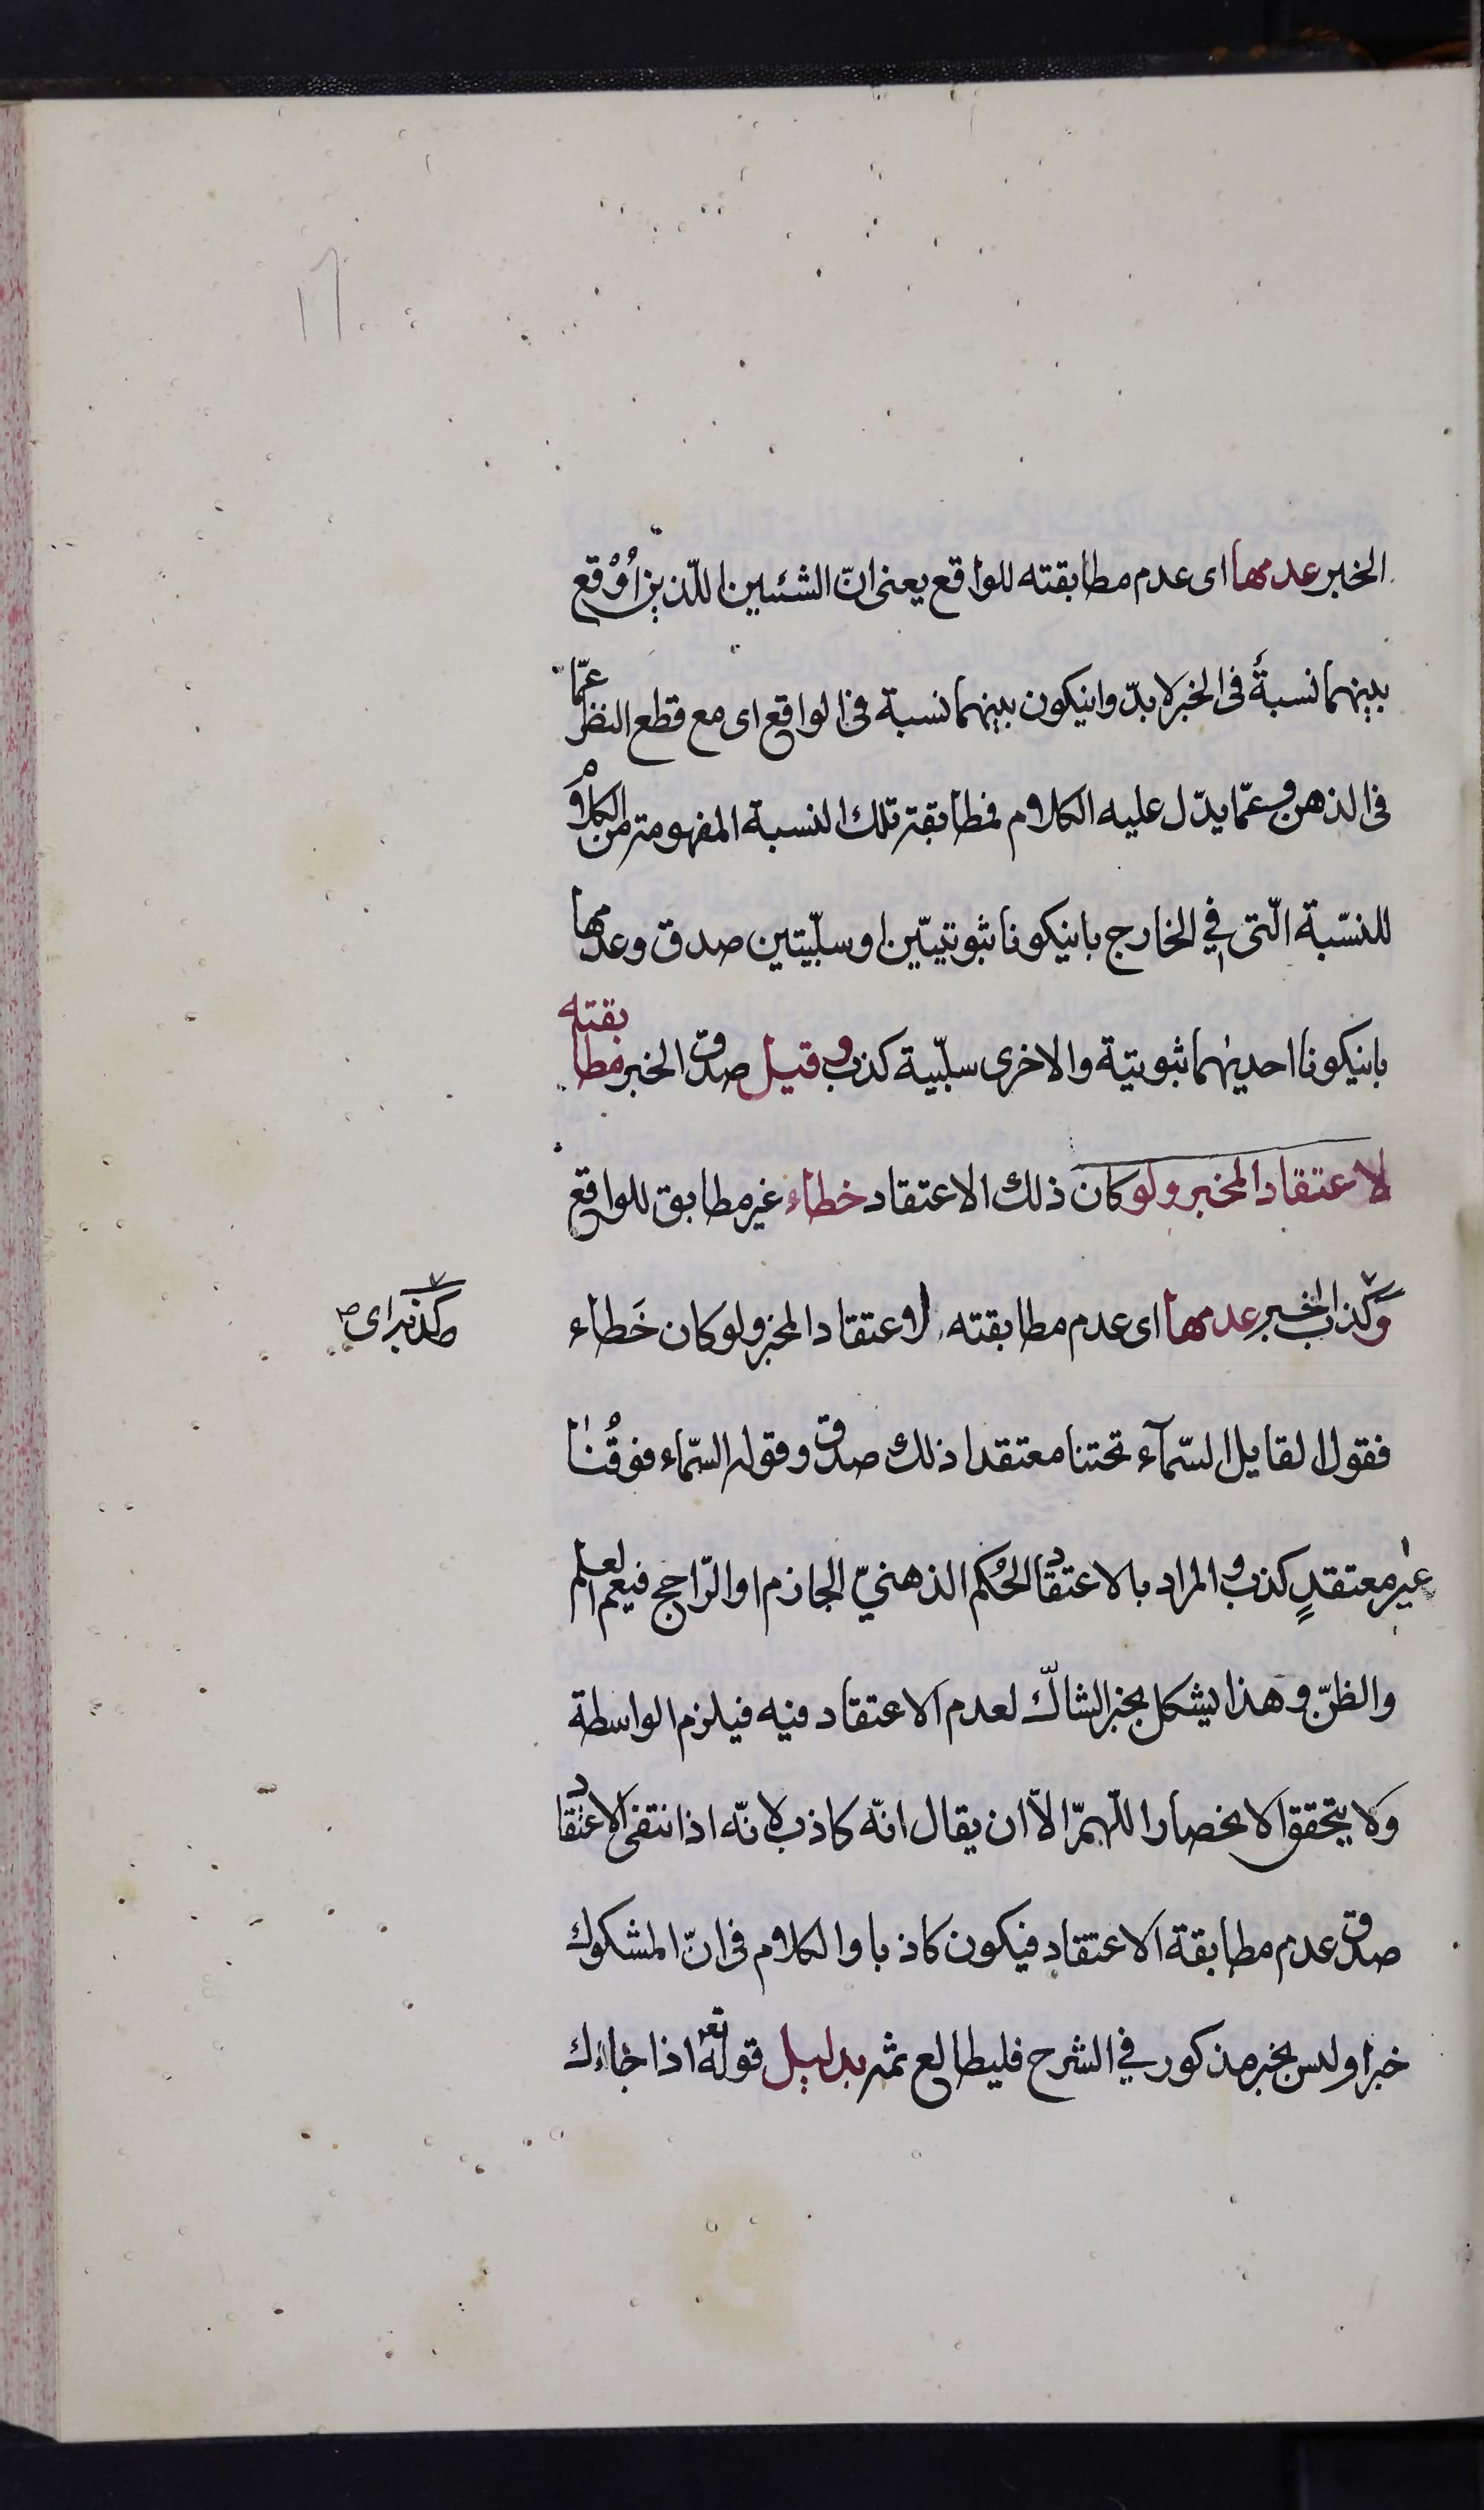 الخبر عدمها اى عدم مطابقته للواقع يعنى انّ الشئيين اللّذين اُوْقع
بينهما نسبةٌ فى الخبر لا بدّ وانيكون بينهما نسبة فى الواقع اى مع قطع النظر عمّا
فى الذهن وعمّا يدّل عليه الكلام فمطابقة تلك النسبة المفهومة من الكلام
للنسّبة الّتى في الخارج بانيكونا ثبوتيّين او سلبّيتين صدق وعدمها
بانيكونا احديهما ثبوتيّة والاخرى سلبّية كذب وقيل صدق الخبر مطابقته
لاعتقاد المخبر ولو كان ذلك الاعتقاد خطاء غير مطابق للواقع
وكذب الخبر عدمها اى عدم مطابقته لاعتقاد المخبر ولو كان خَطاء
فقول القايل السّمآء تحتنا معتقدا ذلك صدق وقوله السّماء فوقُنا
غير معتقدٍ كذب والمراد بالاعتقاد الحُكم الذهنيّ الجازم او الرّاجح فيعم العلم
والظنّ وهذا يشكل بخبر الشاكّ لعدم الاعتقاد فيه فيلزم الواسطة
ولا يتحقق الانحصار اللّهمّ الاّ ان يقال انّه كاذب لانّه اذا انتفى الاعتقاد
صدق عدم مطابقة الاعتقاد فيكون كاذبا والكلام فى انّ المشكوك
خبر او ليس بخبر مذكور في الشرح فليطالع ثمّه بدليل قوله تع اذا جاءك